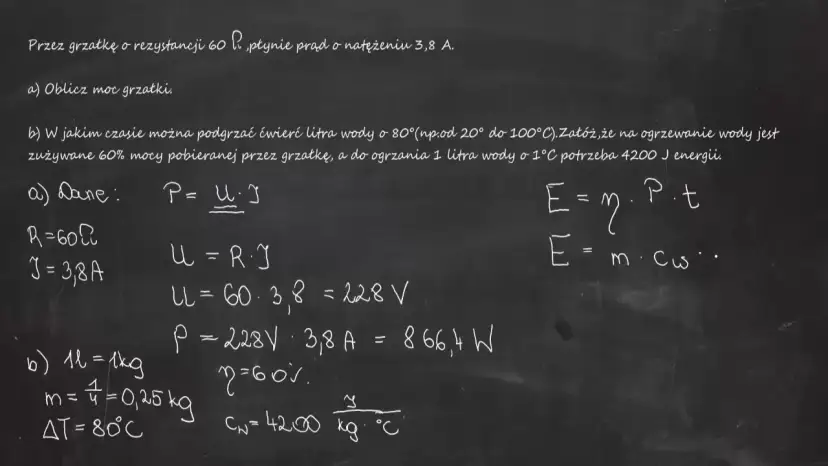 Przez grzałkę o rezystancji 60 Ω, płynie prąd o natężeniu 3,8 A.
a) Oblicz moc grzałki.
b) W jakim czasie można podgrzać ćwierć litra wody o 80°(np.od 20° do 100°C).Załóż,że na ogrzewanie wody jest
zużywane 60% mocy pobieranej przez grzałkę, a do ogrzania 1 litra wody o 1°C potrzeba 4200 J energii.
a) Dane:
R=60Ω
J=3,8A
P= U·J
U = R·J
U = 60·3,8 = 228 V
P = 228V · 3,8 A = 866,4 W
E = η · P · t
E = m · cw ··
b) 1l = 1kg
m = 1/4 = 0,25 kg
ΔT = 80°C
η=60%
cw = 4200 J/kg·°C